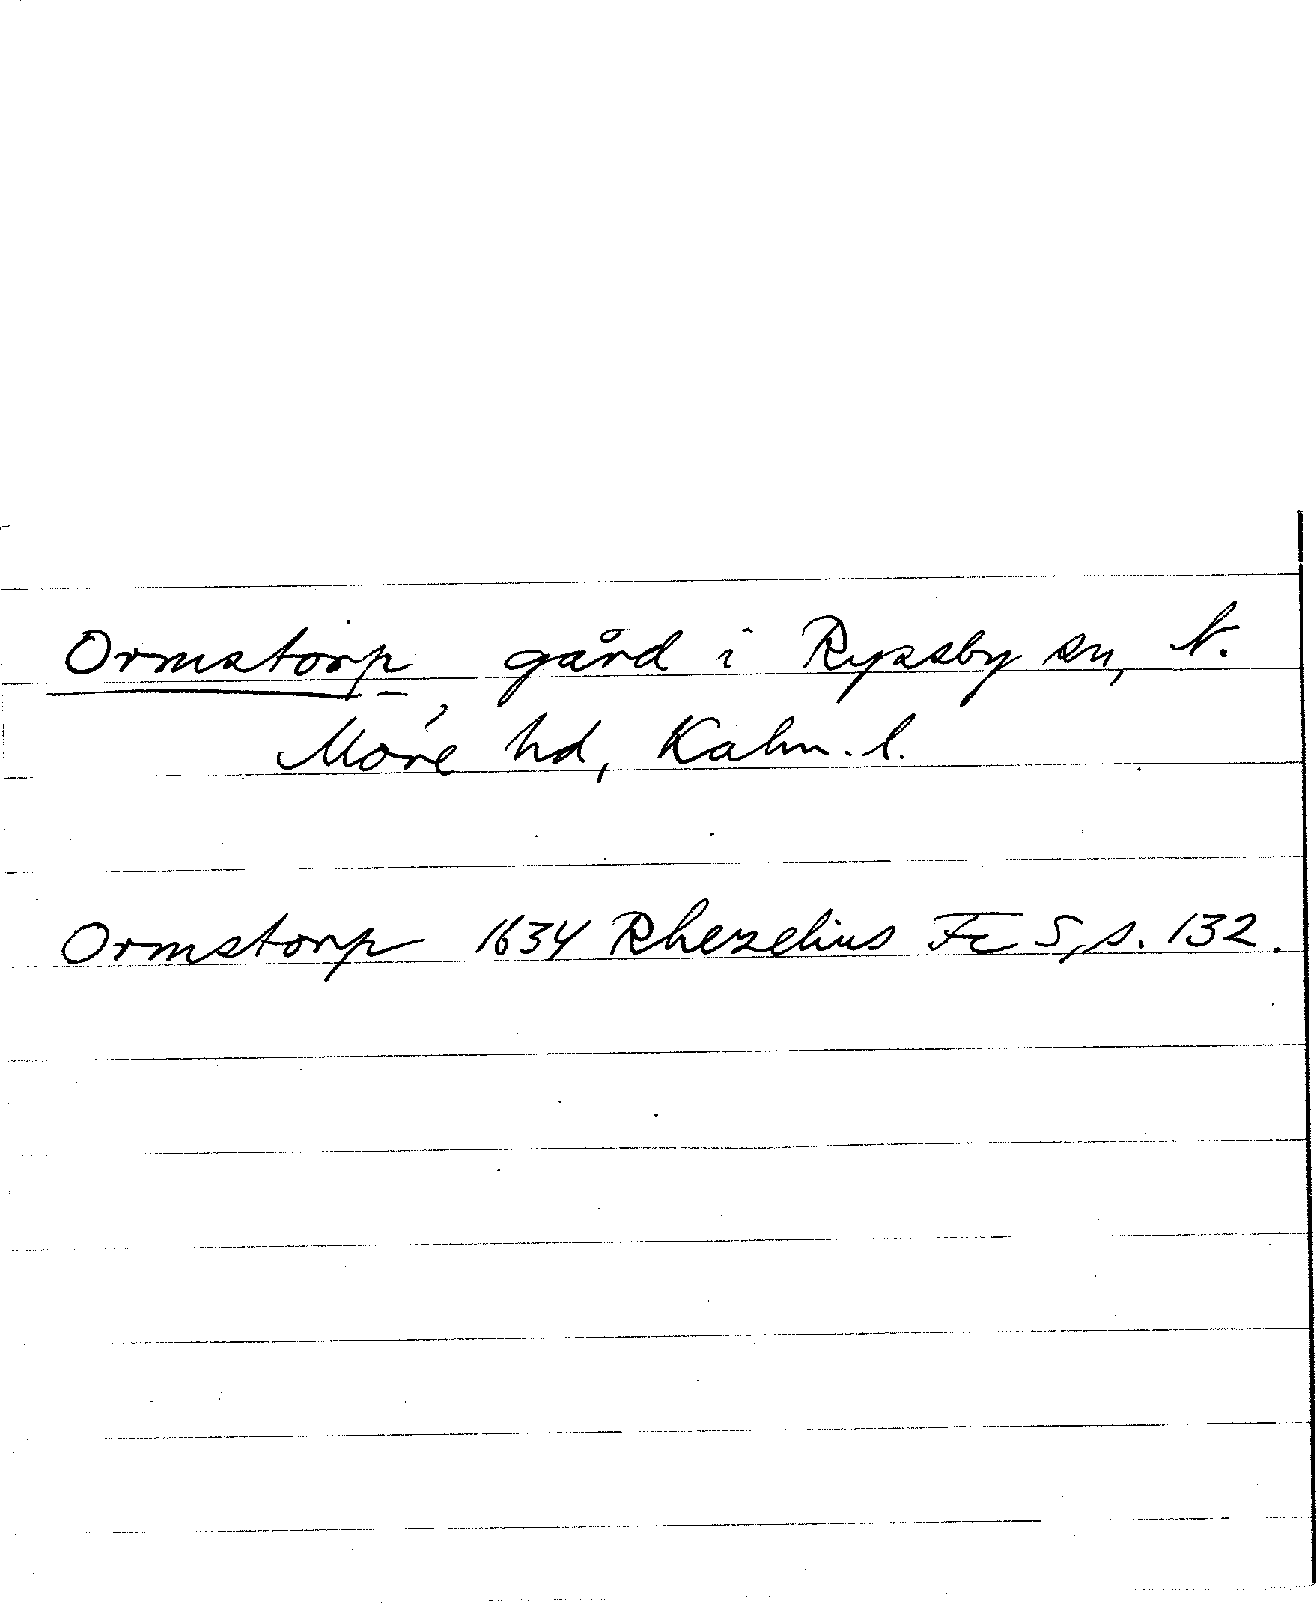 Ormstorp, gård i Ryssby sn, N.
Möre hd, Kalm. l.
Ormstorp 1634 Rhezelius Fc 5, s. 132.